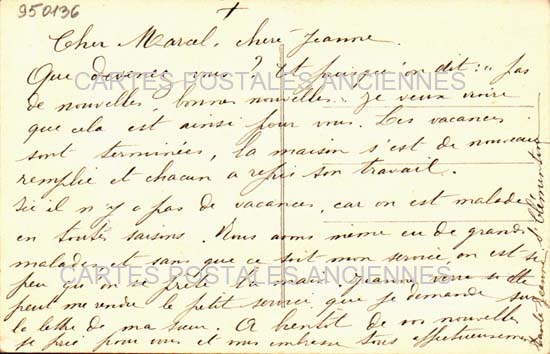 950136
Cher Marcel, chère Jeanne.
Que devenez vous ? Et puisqu'on dit : "pas
de nouvelles, bonnes nouvelles. Je veux croire
que cela est ainsi pour vous. Les vacances
sont terminées, la maison s'est de nouveau
remplie et chacun a repris son travail.
Ici il n'y a pas de vacances, car on est malade
en toutes saisons. Nous avons même eu de grands
malades et sans que ce soit mon service, on est si
peu qu'on se prête la main. Jeanne verra si elle
peut me rendre le petit service que je demande sur
la lettre de ma sœur. A bientôt de vos nouvelles
je prie pour vous et vous embrasse tous affectueusement
CARTES POSTALES ANCIENNES
CARTES POSTALES ANCIENNES